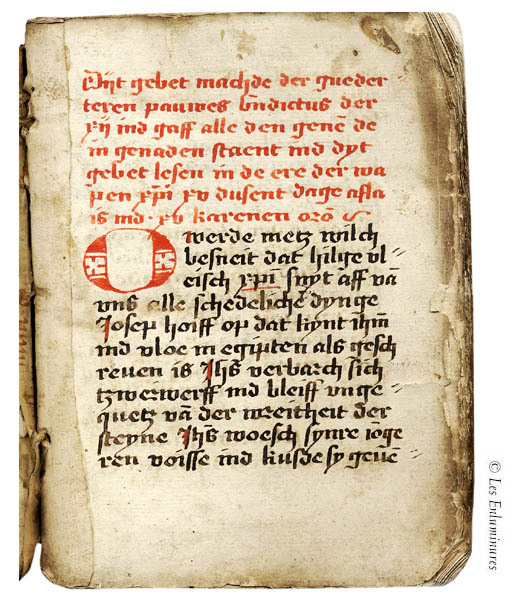 Dijt gebet machde der gueder
teren pauwes bndictus der
xij ind gaff alle den genē de
in genaden staent ind dyt
gebet lesen in de ere der wa
pen xp̄i xv dusent dage afla
is ind xv karenen orō
O werde metz wilch
besneit dat hilige vl
eisch xp̄i snyt aff vā
vns alle schedeliche dynge
Josep hoiff op dat kynt ihm̄
ind vloe in egipten als gesch
reven is Jhs̄ verbarch sich
tzwerwerff ind bleiff vnge
quetz vā der wreitheit der
steyne Jhs̄ woesch synre iōge
ren voisse ind kusde sy gevē
© Les Enluminures